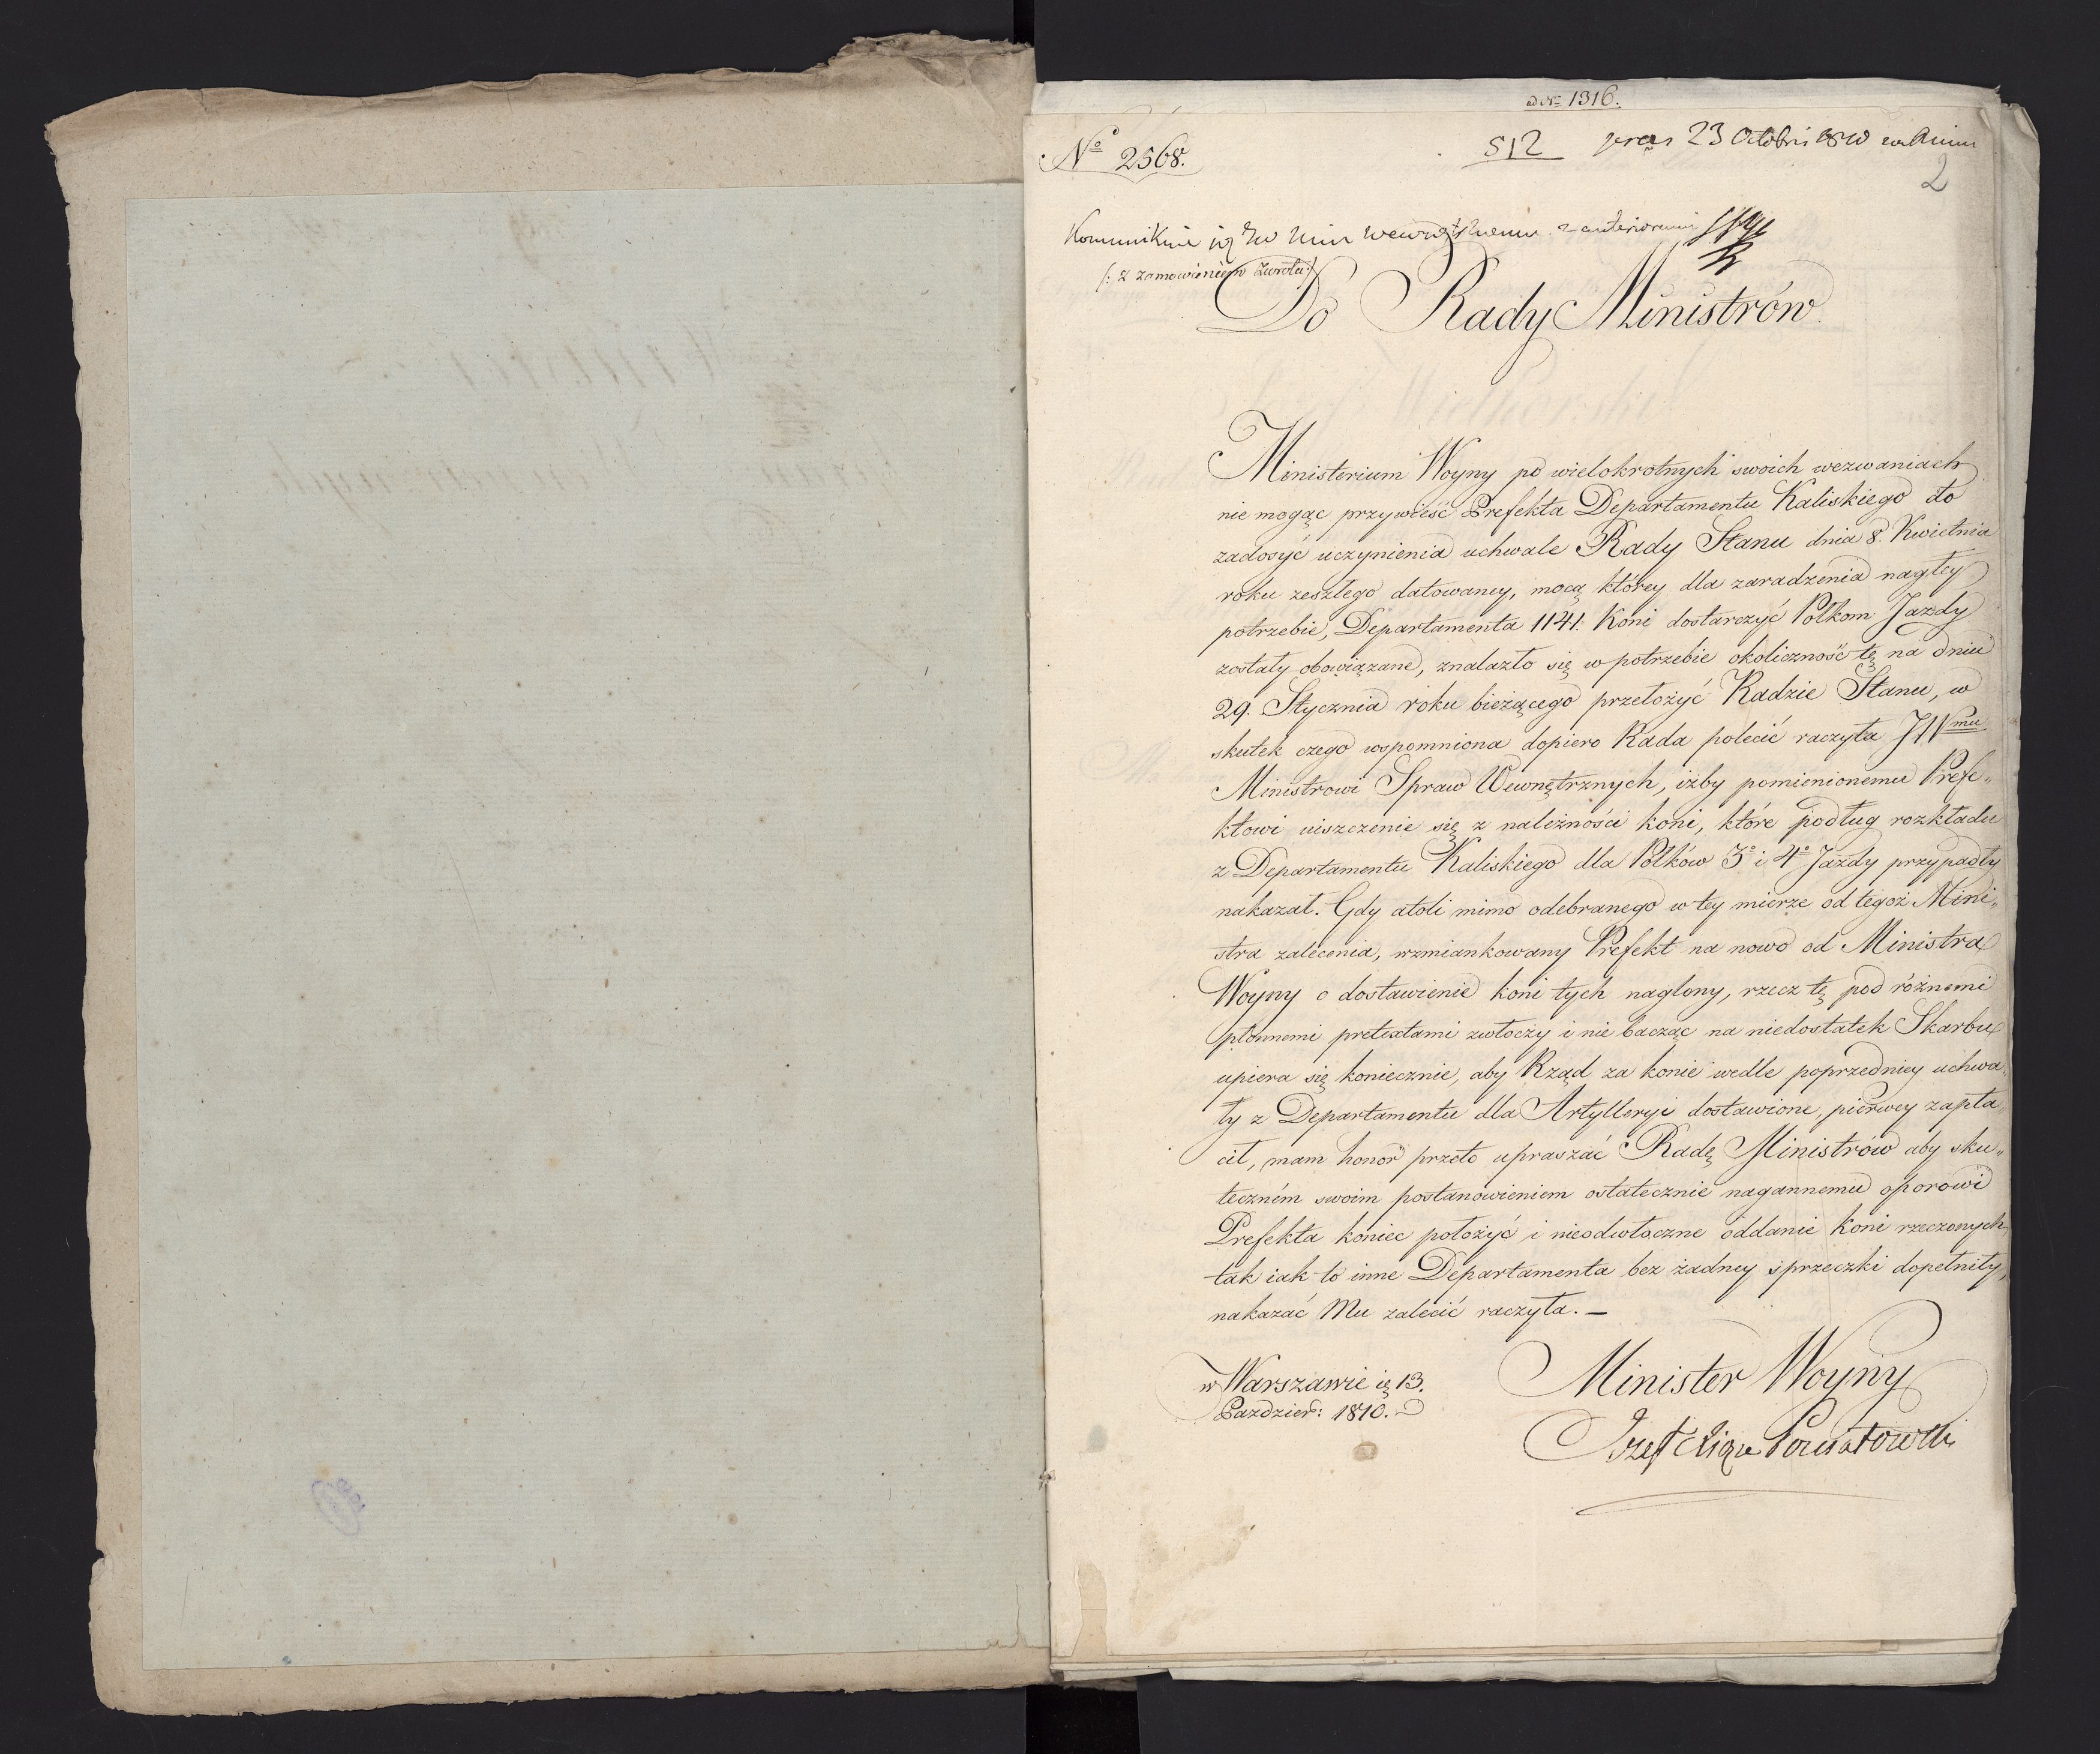 ad N= 1316.
N° 2568.
512 praes 23 Octobris 1810
2
Komunikuie się JW Min Wewnętrznemu z anterioremi
(: z zamowieniem zwrotu :)
Do Rady Ministrów
Ministerium Woyny po wielokrotnych swoich wezwaniach
nie mogąc przywieść Prefekta Departamentu Kaliskiego do
zadosyć uczynienia uchwale Rady Stanu dnia 8. Kwietnia
roku zeszłego datowaney, mocą którey dla zaradzenia nagłey
potrzebie, Departamenta 1141. Koni dostarczyć Połkom Jazdy
zostały obowiązane, znalazło się w potrzebie okoliczność tę na dniu
29. Stycznia roku bieżącego przełożyć Radzie Stanu, w
skutek czego wspomniona dopiero Rada polecić raczyła JWmu
Ministrowi Spraw Wewnętrznych, iżby pomienionemu Prefe„
ktowi uiszczenie się z należności koni, które podług rozkładu
z Departamentu Kaliskiego dla Połków 3° i 4° Jazdy przypadły
nakazał. Gdy atoli mimo odebranego w tey mierze od tegoż Mini„
stra zalecenia, wzmiankowany Prefekt na nowo od Ministra
Woyny o dostawienie koni tych naglony, rzecz tę pod różnemi
płonnemi pretextami zwłoczy i nie bacząc na niedostatek Skarbu
upiera się koniecznie, aby Rząd za konie wedle poprzedniey uchwa„
ły z Departamentu dla Artylleryi dostawione, pierwey zapła„
cił, mam honor przeto upraszać Radę Ministrów aby sku„
teczném swoim postanowieniem ostatecznie nagannemu oporowi
Prefekta koniec położyć i nieodwłoczne oddanie koni rzeczonych,
tak iak to inne Departamenta bez żadney sprzeczki dopełniły,
nakazać Mu zalecić raczyła. —
w Warszawie ię 13.
Paździer: 1810.
Minister Woyny
Józef Xiąże Poniatowski